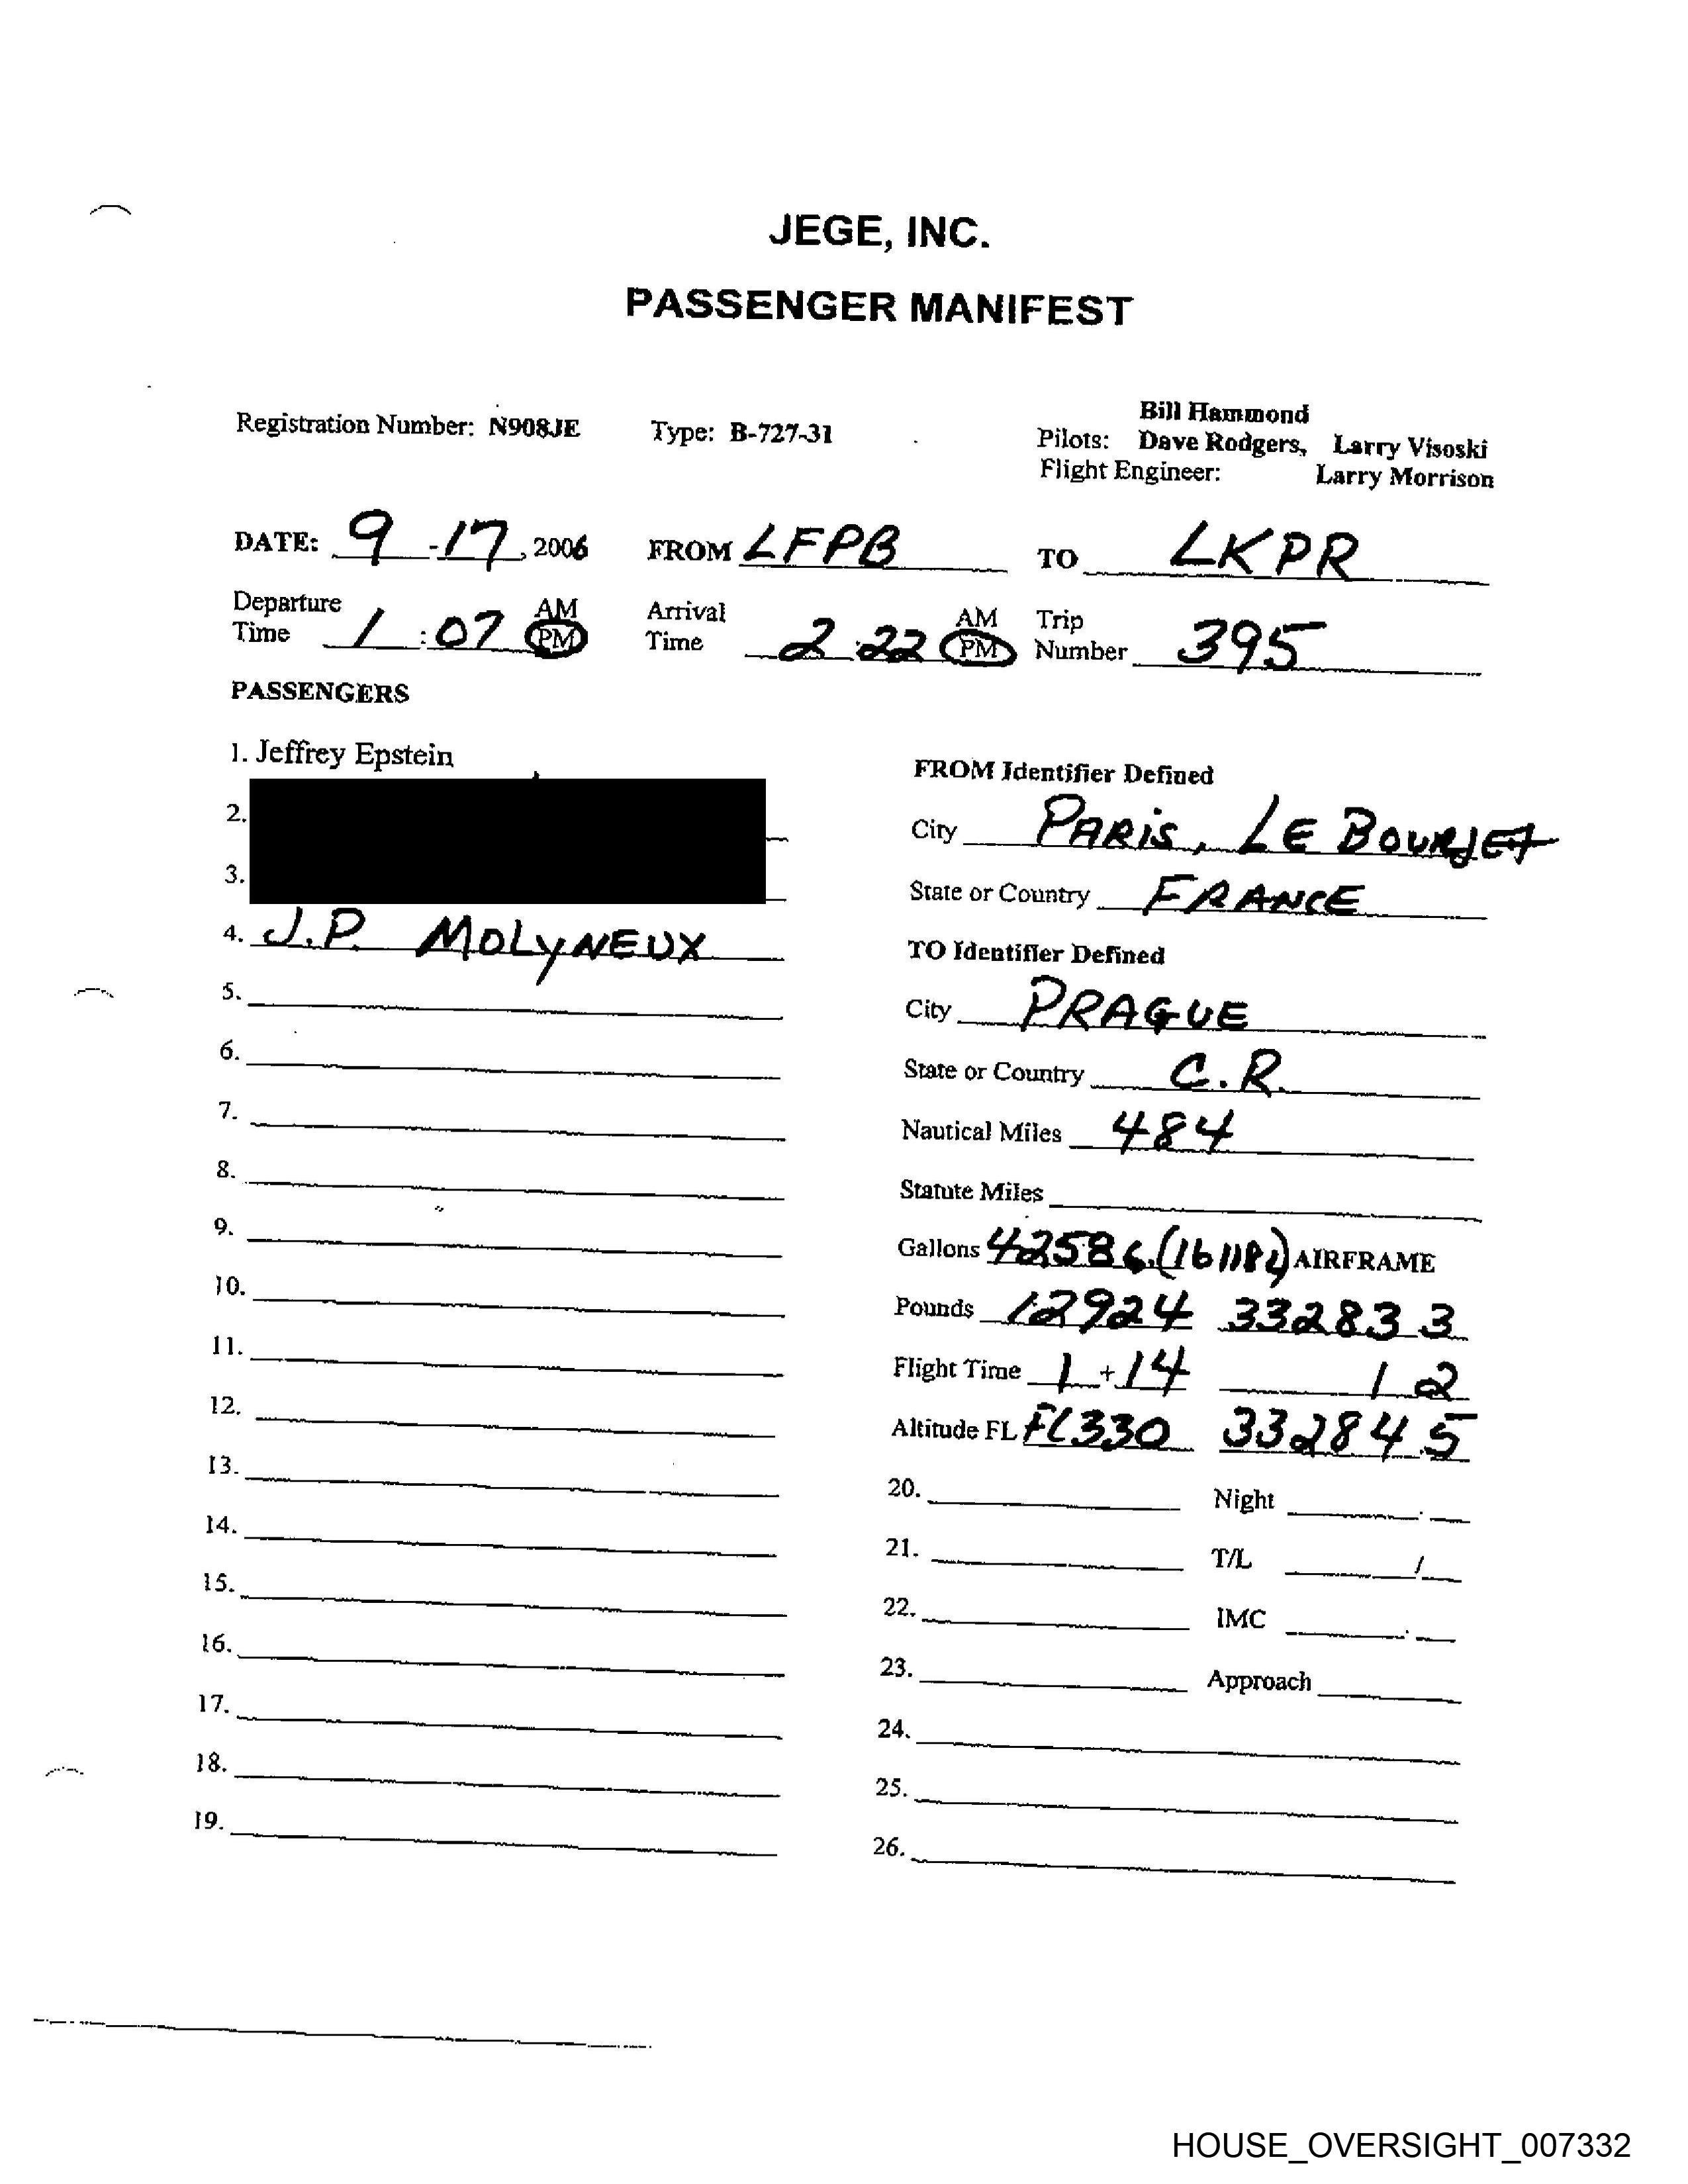 JEGE, INC.
PASSENGER MANIFEST
Registration Number: N908JE
Type: B-727-31
Bill Hammond
Pilots: Dave Rodgers, Larry Visoski
Flight Engineer: Larry Morrison
DATE: 9-17, 2006 FROM LFPB TO LKPR
Departure Time 1:07 AM PM
Arrival Time 2:22 AM PM
Trip Number 395
PASSENGERS
1. Jeffrey Epstein
2.
3.
4. J.P. MOLYNEUX
5.
6.
7.
8.
9.
10.
11.
12.
13.
14.
15.
16.
17.
18.
19.
FROM Identifier Defined
City PARIS, LE BOURJET
State or Country FRANCE
TO Identifier Defined
City PRAGUE
State or Country C.R.
Nautical Miles 484
Statute Miles
Gallons AIRFRAME
Pounds 12924 33283 3
Flight Time 1+14 1 2
Altitude FL FL330 33284.5
20. Night
21. T/L /
22. IMC
23. Approach
24.
25.
26.
HOUSE_OVERSIGHT_007332